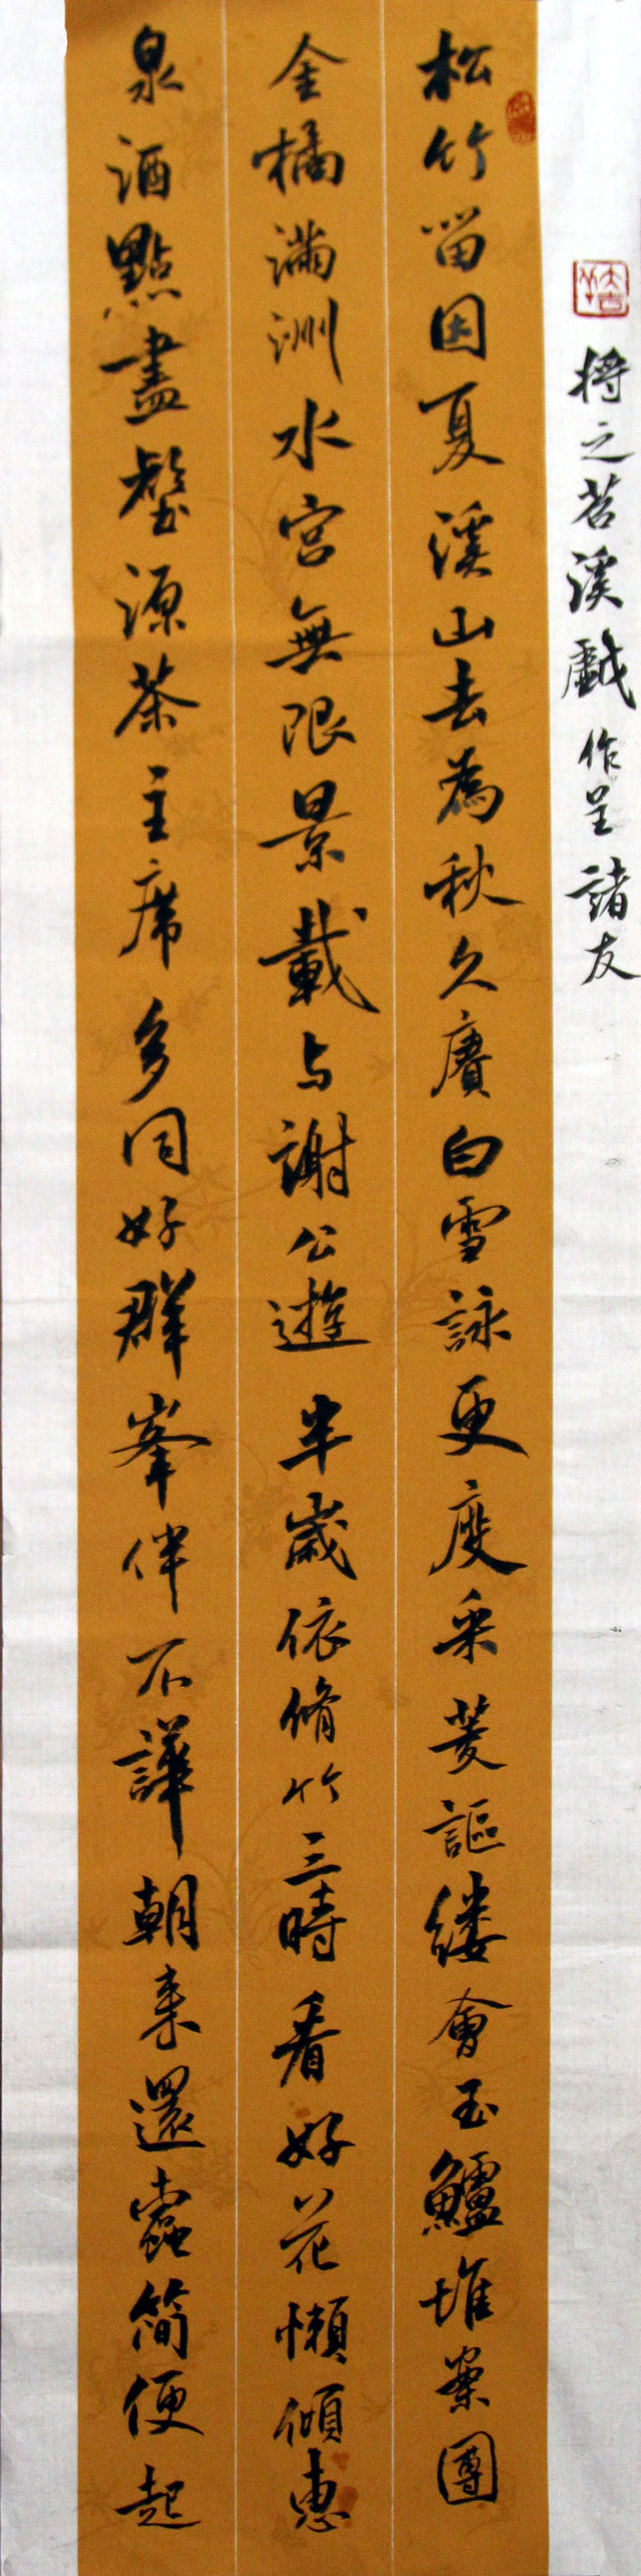 將之苕溪戲作呈諸友
松竹留因夏溪山去為秋久賡白雪詠更度采菱謳縷會玉鱸堆案團
金橘滿洲水宮無限景載与謝公遊半歲依脩竹三時看好花懶傾惠
泉酒點盡壑源茶主席多同好群峯伴不譁朝来還蠹簡便起